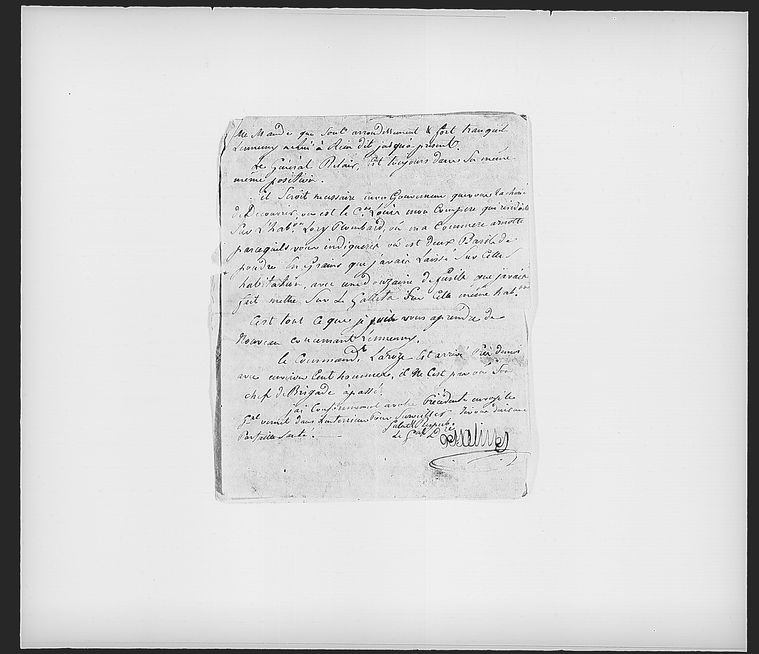 Me Mande que Son arrondissement & fort tranquil
Lennemy à Rien dit jusqua présent.
Le Général Belair, Est toujours dans Sa meme
même position.
il Seroit nécessaire mon Gouverneur que
de Decouvrir, ou est le C.en Louis mon Compere qui résidoit
Sur L'hab.on Lory Plombard, ou ma Commere
parcequils vous indiquera où est deux Barils de
poudre En Grains que javais Laissé Sur Cette
habitation, avec une douzaine de fusils que javais
fait mettre Sur Le Galletas d'un Cette même hab.on
C'est tout Ce que je puis vous aprendre de
Nouveau concernant Lennemy.
Le Command.t Laroze Est arrivé
avec environ Cent hommes, & Ne Cest pas ou Son
chef de Brigade à passé.
j'ai Conformément a votre Précédente envoyé le
G.al vernet dans
Parfaite Sorte.
Salut & Respect.
Le G.al